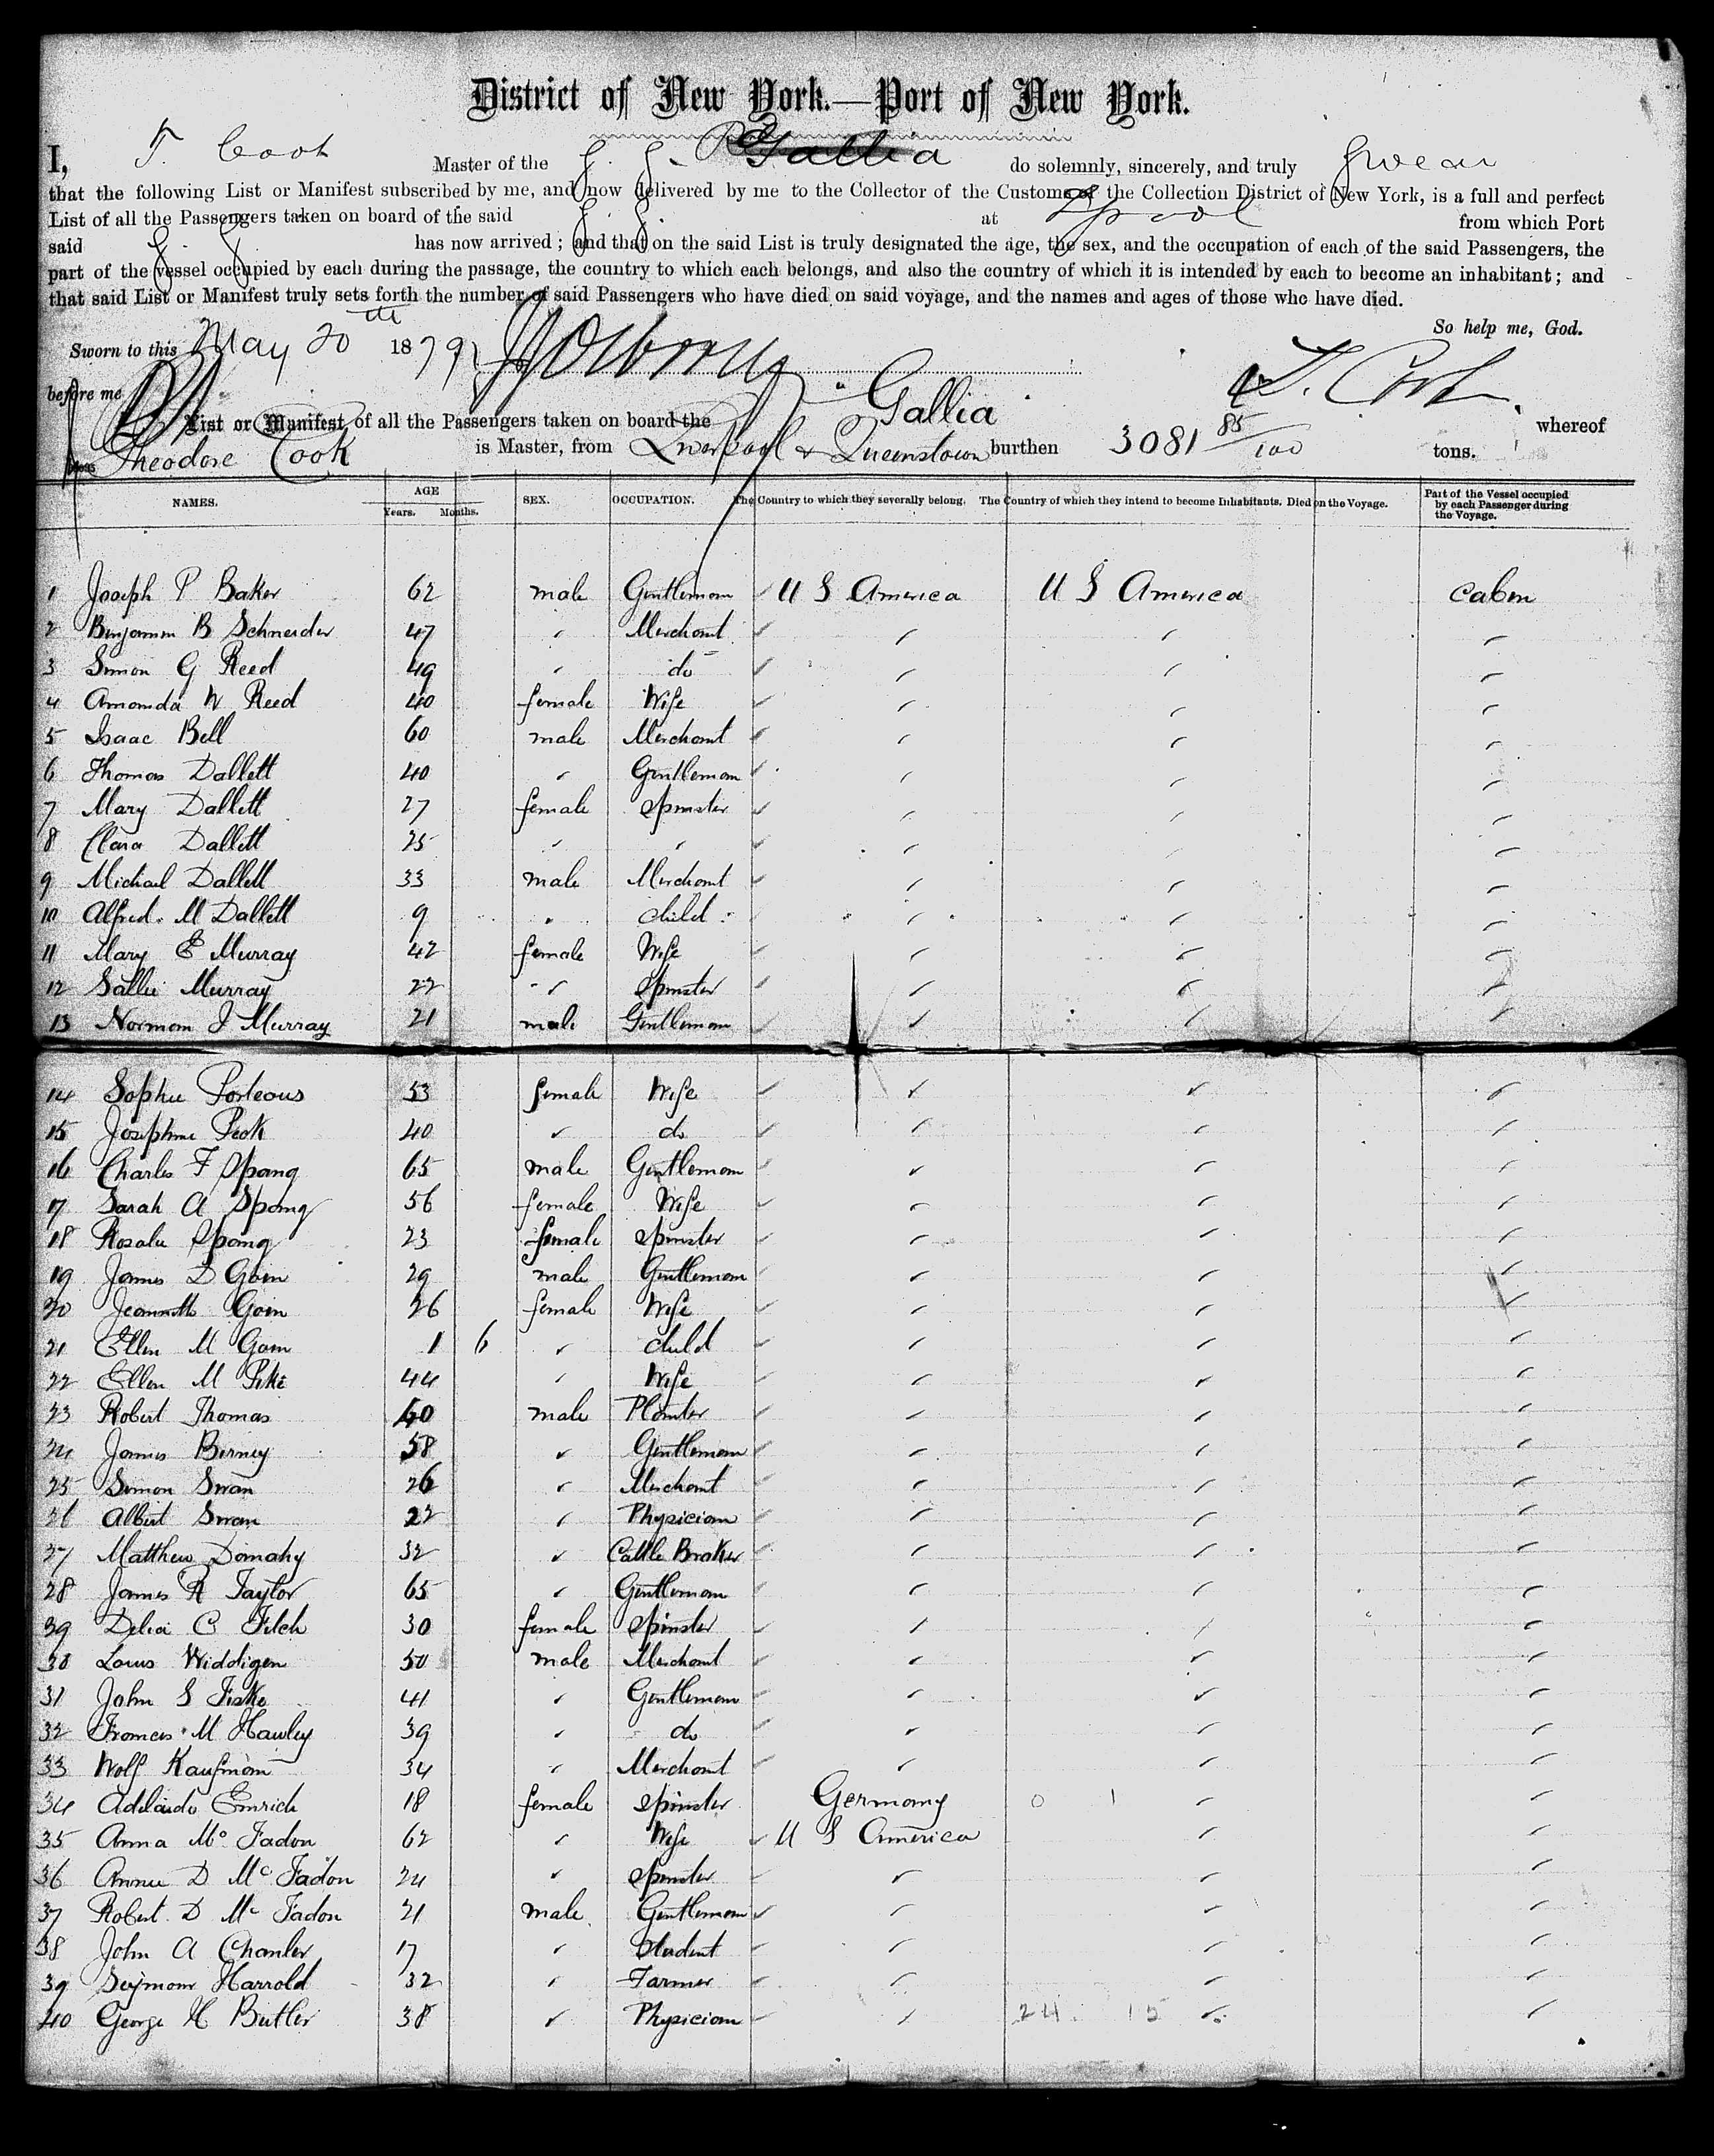 District of New York.—Port of New York.
I, T. Cook Master of the S. S. Gallia do solemnly, sincerely, and truly swear
that the following List or Manifest subscribed by me, and now delivered by me to the Collector of the Customs of the Collection District of New York, is a full and perfect
List of all the Passengers taken on board of the said S. S. at Lpool from which Port
said S. S. has now arrived; and that on the said List is truly designated the age, the sex, and the occupation of each of the said Passengers, the
part of the vessel occupied by each during the passage, the country to which each belongs, and also the country of which it is intended by each to become an inhabitant; and
that said List or Manifest truly sets forth the number of said Passengers who have died on said voyage, and the names and ages of those who have died.
So help me, God.
Sworn to this May 20th 1879
before me T. Cook
List or Manifest of all the Passengers taken on board the Gallia whereof
Theodore Cook is Master, from Liverpool & Queenstown burthen 3081 85/100 tons.
NAMES. AGE Years. Months. SEX. OCCUPATION. The Country to which they severally belong. The Country of which they intend to become Inhabitants. Died on the Voyage. Part of the Vessel occupied by each Passenger during the Voyage.
1 Joseph P Baker 62 male Gentleman U S America U S America Cabin
2 Benjamin B Schneider 47 " Merchant " " "
3 Simon G Reed 49 " do " " "
4 Amanda W Reed 40 female Wife " " "
5 Isaac Bell 60 male Merchant " " "
6 Thomas Dallett 40 " Gentleman " " "
7 Mary Dallett 27 female Spinster " " "
8 Clara Dallett 25 " " " " "
9 Michael Dallett 33 male Merchant " " "
10 Alfred M Dallett 9 " child " " "
11 Mary E Murray 42 female Wife " " "
12 Sallie Murray 22 " Spinster " " "
13 Norman J Murray 21 male Gentleman " " "
14 Sophie Porteous 53 female Wife " " "
15 Josephine Peck 40 " do " " "
16 Charles F Spang 65 male Gentleman " " "
17 Sarah A Spang 56 female Wife " " "
18 Rosalie Spang 23 female Spinster " " "
19 James D Gam 29 male Gentleman " " "
20 Jeannette Gam 26 female Wife " " "
21 Ellen M Gam 1 6 " child " " "
22 Ellen M Pike 44 " Wife " " "
23 Robert Thomas 50 male Planter " " "
24 James Birney 58 " Gentleman " " "
25 Simon Swan 26 " Merchant " " "
26 Albert Swan 22 " Physician " " "
27 Matthew Domahy 32 " Cattle Broker " " "
28 James R Taylor 65 " Gentleman " " "
29 Delia C Filch 30 female Spinster " " "
30 Louis Widdigen 50 male Merchant " " "
31 John S Fiske 41 " Gentleman " " "
32 Frances M Hawley 39 " do " " "
33 Wolf Kaufmann 34 " Merchant " " "
34 Adelaide Emrich 18 female Spinster Germany 0 1 " "
35 Anna Mc Fadon 62 " Wife U S America " "
36 Annie D Mc Fadon 24 " Spinster " " "
37 Robert D Mc Fadon 21 male Gentleman " " "
38 John A Chanler 17 " Student " " "
39 Seymour Harrold 32 " Farmer " " "
40 George H Butler 38 " Physician " 24. 15 " "